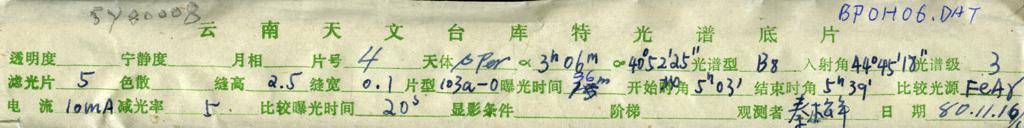 5Y80008 BP0H06.DAT
云南天文台库特光谱底片
透明度 宁静度 月相 片号 4 天体 β Per α 3ʰ06ᵐ ∞ 40°52'25" 光谱型 B8 入射角 44°45'18" 光谱级 3
滤光片 5 色散 缝高 2.5 缝宽 0.1 片型 103a-O 曝光时间 36ᵐ 开始时角 5ʰ03' 结束时角 5ʰ39' 比较光源 FeAr
电流 10mA 减光率 5 比较曝光时间 20ˢ 显影条件 阶梯 观测者 日期 80.11.16